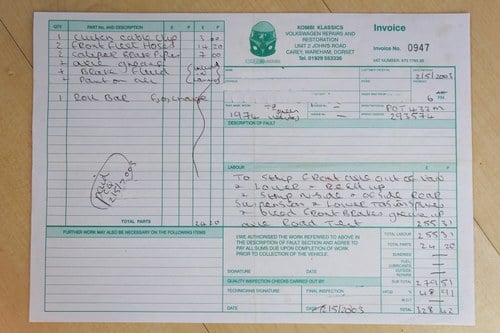 QTY PART No. AND DESCRIPTION £ P
1 Clutch Cable Clip 3 00
2 Front Flexi Hoses 14 20
2 Caliper Brake Pipes 7 00
+ Axle Grease
+ Brake Fluid
+ Part on Axle
1 Roll Bar Exchange
paid
2/5/2003
TOTAL PARTS 24 20
FURTHER WORK MAY ALSO BE NECESSARY ON THE FOLLOWING ITEMS
KOMBI KLASSICS
VOLKSWAGEN REPAIRS AND
RESTORATION
UNIT 2 JOHNS ROAD
CAREY, WAREHAM, DORSET
Tel. 01929
Invoice
Invoice No. 0947
VAT NUMBER:
NAME
2/5/2003
ADDRESS
6
1974
293574
DESCRIPTION OF FAULT
LABOUR £ P
To Strip Front Axle out of Van
+ Lower + Refit up
+ Strip N/Side + O/Side Rear
Suspension + Lower Torsion
+ bleed Front Brakes grease up
axle Road Test 255 31
I/WE AUTHORISED THE WORK REFERRED TO ABOVE IN
THE DESCRIPTION OF FAULT SECTION AND AGREE TO
PAY ALL SUMS DUE UPON COMPLETION OF WORK
PRIOR TO COLLECTION OF THE VEHICLE.
SIGNATURE DATE
TOTAL LABOUR 255 31
TOTAL PARTS 24 20
SUNDRIES
FUEL/LUBRICANTS
OUTSIDE REPAIRS
QUALITY INSPECTION CHECKS CARRIED OUT BY:
TECHNICIANS SIGNATURE SIGNATURE
DATE 2/5/2003
SUB TOTAL 279 51
48 91
M.O.T.
TOTAL 328 42